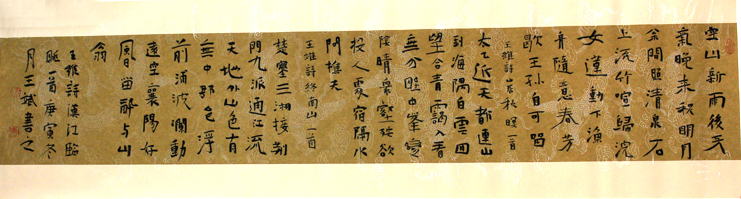 空山新雨後天
氣晚来秋明月
松間照清泉石
上流竹喧歸浣
女蓮動下漁
舟隨意春芳
歇王孫自可留
王維詩山居秋暝一首
太乙近天都連山
到海隅白雲回
望合青靄入看
無分野中峯變
陰晴衆壑殊欲
投人處宿隔水
問樵夫
王維詩終南山一首
楚塞三湘接荆
門九派通江流
天地外山色有
無中郡邑浮
前浦波瀾動
遠空襄陽好
風日留醉与山
翁
王維詩漢江臨
眺一首庚寅冬
月王斌書之